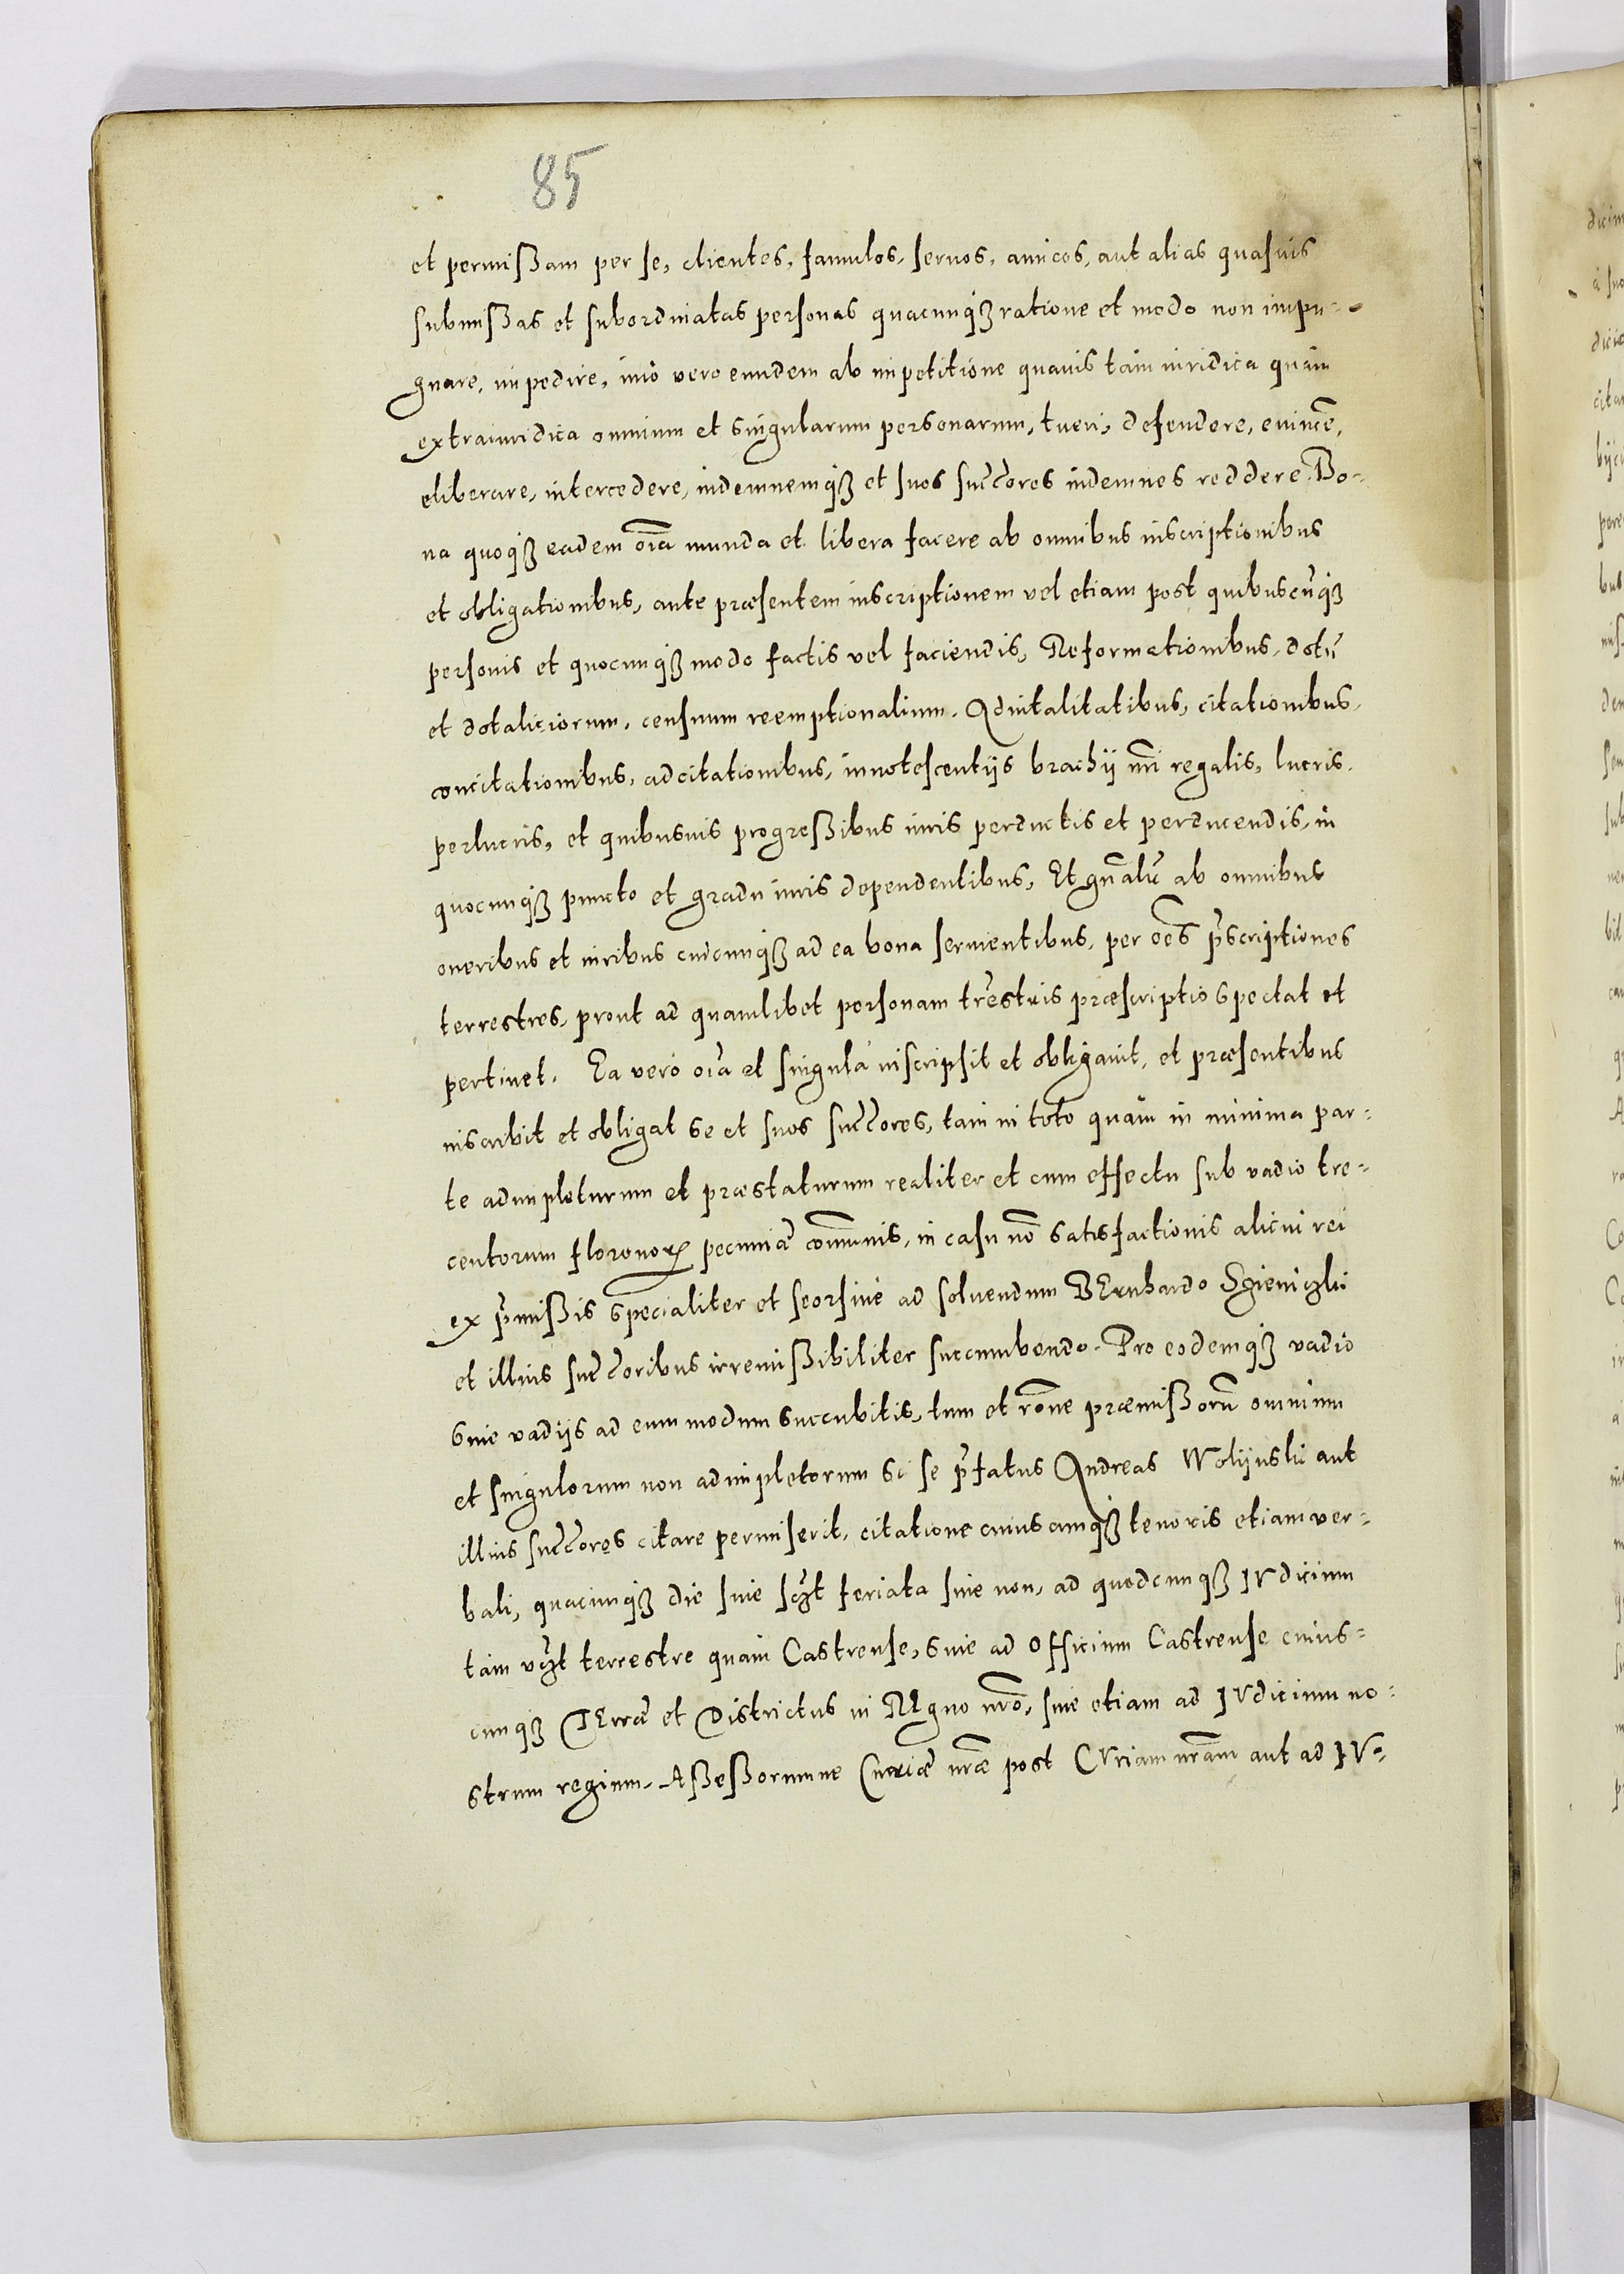 85
et permißam per se, clientes, famulos, seruos, amicos, aut alias quasuis
submißas et subordinatas personas quacunqꝫ ratione et modo non impu-
gnare, impedire, imò vero eundem ab impetitione quauis tam iuridica quàm
extraiuridica omnium et singularum personarum, tueri, defendere, euinc̃e,
eliberare, intercedere, indemnemqꝫ et suos succ̃ores indemnes reddere. Bo-
na quoqꝫ eadem oĩa munda et libera facere ab omnibus inscriptionibus
et obligationibus, ante præsentem inscriptionem vel etiam post quibuscũqꝫ
personis et quocunqꝫ modo factis vel faciendis, Reformationibus, dotũ
et dotaliciorum, censuum reemptionalium. Aduitalitatibus, citationibus,
concitationibus, adcitationibus, innotescentijs brachij nr̃i regalis, lucris,
perlucris, et quibusuis progreßibus iuris perductis et perducendis, in
quocunqꝫ puncto et gradu iuris dependentibus, Et gñalit̃ ab omnibus
oneribus et iuribus cuicunqꝫ ad ea bona seruientibus, per oẽs p̃scriptiones
terrestres, prout ad quamlibet personam tr̃estris præscriptio spectat et
pertinet. Ea verò oĩa et singula inscripsit et obligauit, et præsentibus
inscribit et obligat se et suos succ̃ores, tam in toto quàm in minima par-
te adimpleturum et præstaturum realiter et cum effectu sub vadio tre-
centorum florenoꝝ pecuniæ com̃unis, in casu nõ satisfactionis alicui rei
ex p̃mißis specialiter et seorsiue ad soluendum BErnhardo Sgieniczki
et illius succ̃oribus irremißibiliter succumbendo. Pro eodemqꝫ vadio
siue vadijs ad eum modum succubitis, tum et rõne præmißorũ omnium
et singulorum non adimpletorum si se p̃fatus Andreas Wolijnski aut
illius succ̃ores citare permiserit, citatione cuiuscunqꝫ tenoris etiam ver-
bali, quacunqꝫ die siue sczt feriata siue non, ad quodcunqꝫ IVdicium
tàm vczt terrestre quàm Castrense, siue ad Officium Castrense cuius-
cunqꝫ TErræ et Districtus in REgno nr̃o, siue etiam ad IVdicium no-
strum regium, Aßeßorumue Curiæ nr̃æ post CVriam nr̃am aut ad IV-